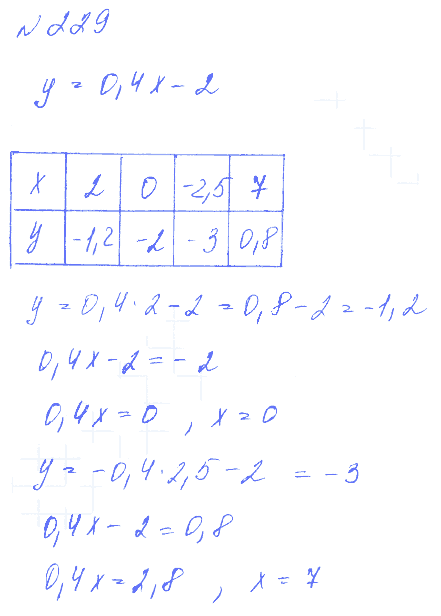 № 229
y = 0,4x − 2
x 2 0 -2,5 7
y -1,2 -2 -3 0,8
y = 0,4 · 2 − 2 = 0,8 − 2 = −1,2
0,4x − 2 = −2
0,4x = 0 , x = 0
y = −0,4 · 2,5 − 2 = −3
0,4x − 2 = 0,8
0,4x = 2,8 , x = 7